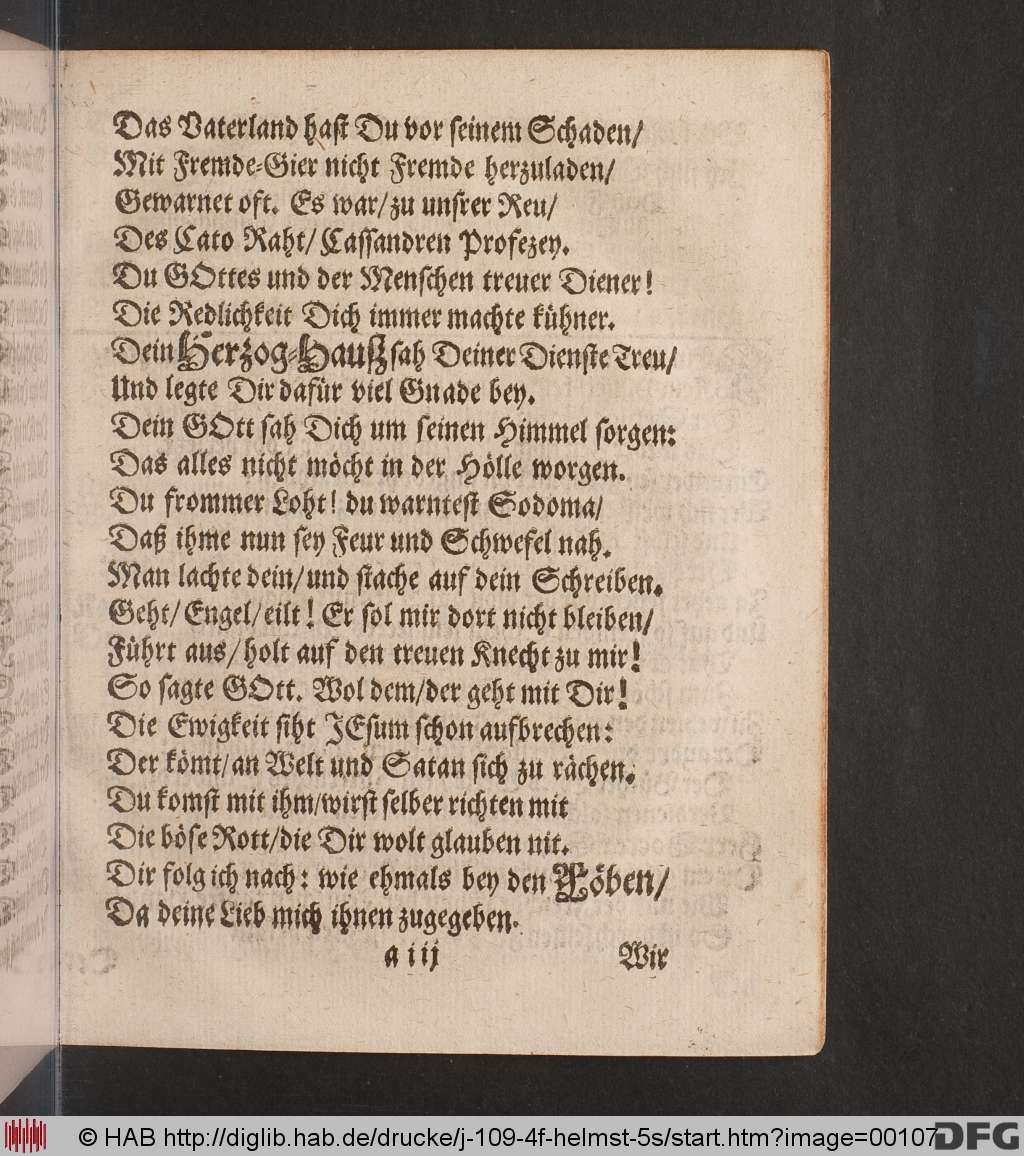 Das Vaterland hast Du vor seinem Schaden/
Mit Fremde-Gier nicht Fremde herzuladen/
Gewarnet oft. Es war/zu unsrer Reu/
Des Cato Raht/Cassandren Profezey.
Du GOttes und der Menschen treuer Diener!
Die Redlichkeit Dich immer machte kühner.
Dein Herzog-Hauß sah Deiner Dienste Treu/
Und legte Dir dafür viel Gnade bey.
Dein GOtt sah Dich um seinen Himmel sorgen:
Das alles nicht möcht in der Hölle worgen.
Du frommer Loht! du warntest Sodoma/
Daß ihme nun sey Feur und Schwefel nah.
Man lachte dein/und stache auf dein Schreiben.
Geht/Engel/eilt! Er sol mir dort nicht bleiben/
Führt aus/holt auf den treuen Knecht zu mir!
So sagte GOtt. Wol dem/der geht mit Dir!
Die Ewigkeit siht JEsum schon aufbrechen:
Der kömt/an Welt und Satan sich zu rächen.
Du komst mit ihm/wirst selber richten mit
Die böse Rott/die Dir wolt glauben nit.
Dir folg ich nach: wie ehmals bey den Föben/
Da deine Lieb mich ihnen zugegeben.
a iij Wir
© HAB http://diglib.hab.de/drucke/j-109-4f-helmst-5s/start.htm?image=00107
DFG